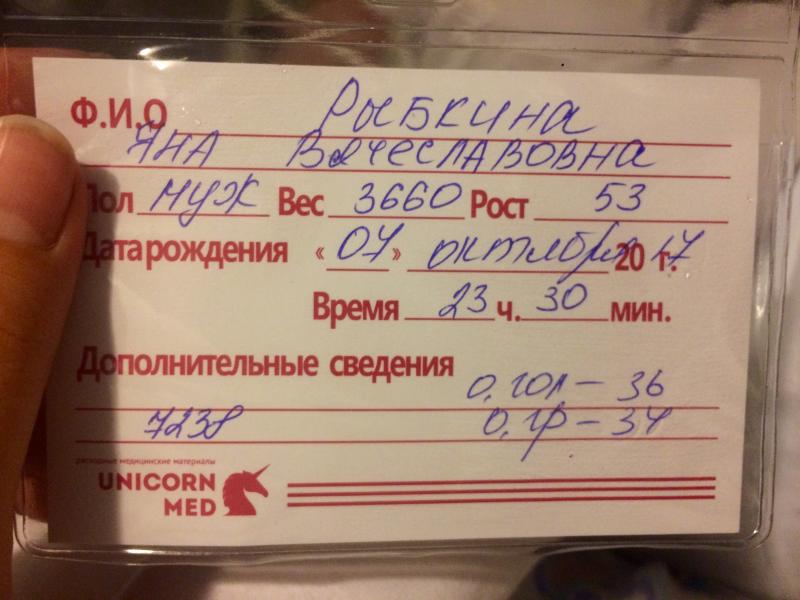 Ф.И.О Рыбкина
Яна Вячеславовна
Пол муж Вес 3660 Рост 53
Дата рождения «07» октября 2017 г.
Время 23 ч. 30 мин.
Дополнительные сведения
О.гол – 36
7238 О.гр – 34
расходные медицинские материалы
UNICORN
MED